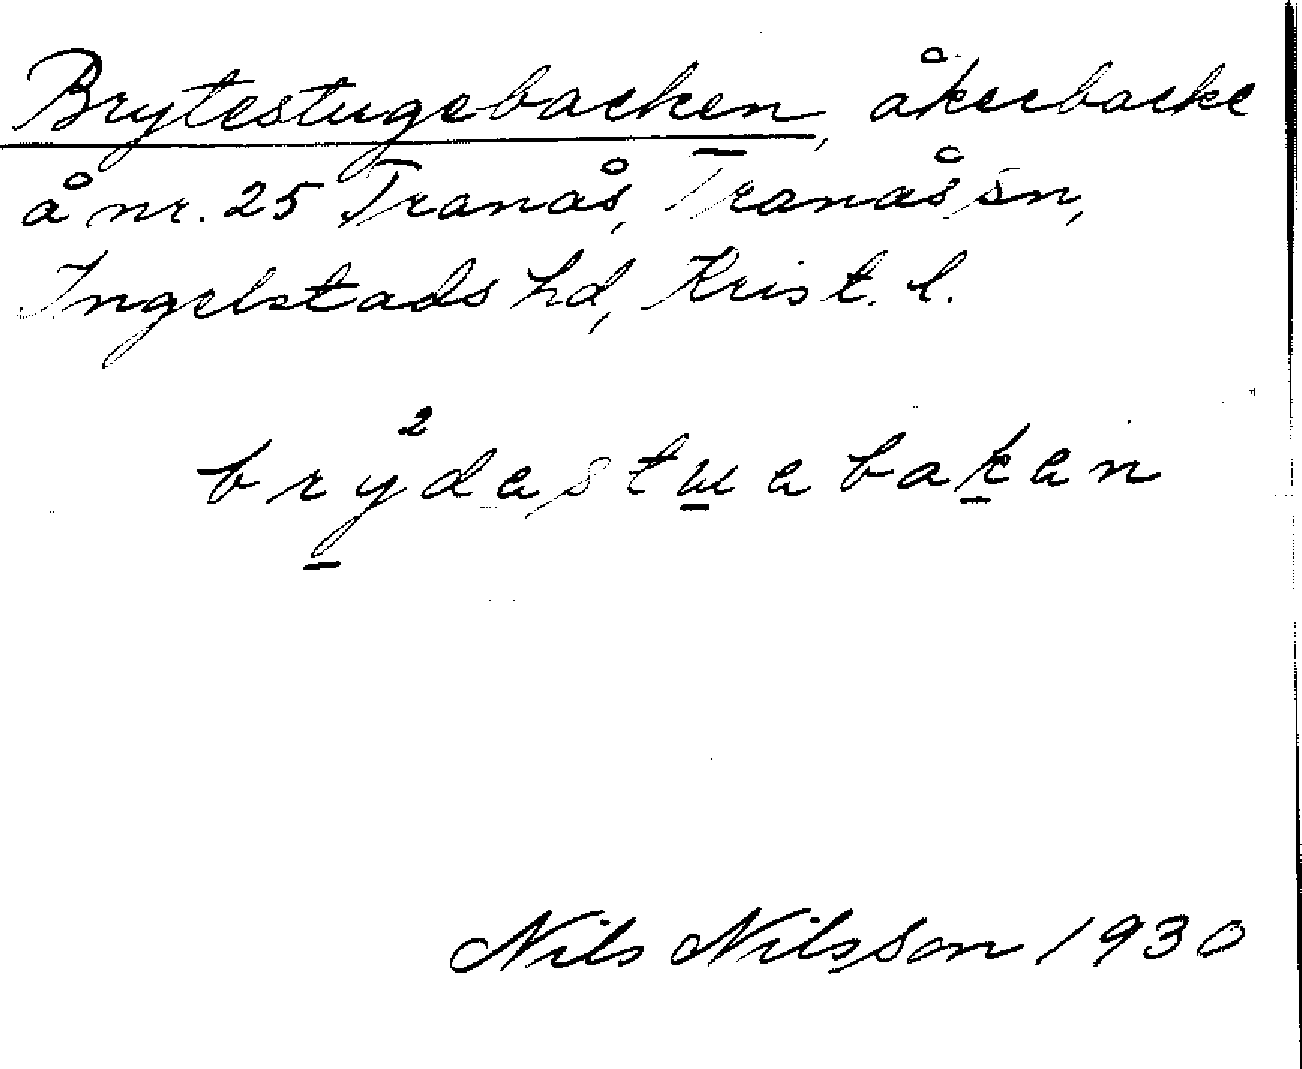 Brytestugebacken, åkerbacke
å nr. 25 Tranås, Tranås sn,
Ingelstads hd, Krist. l.
2
brydastuabakan
Nils Nilsson 1930